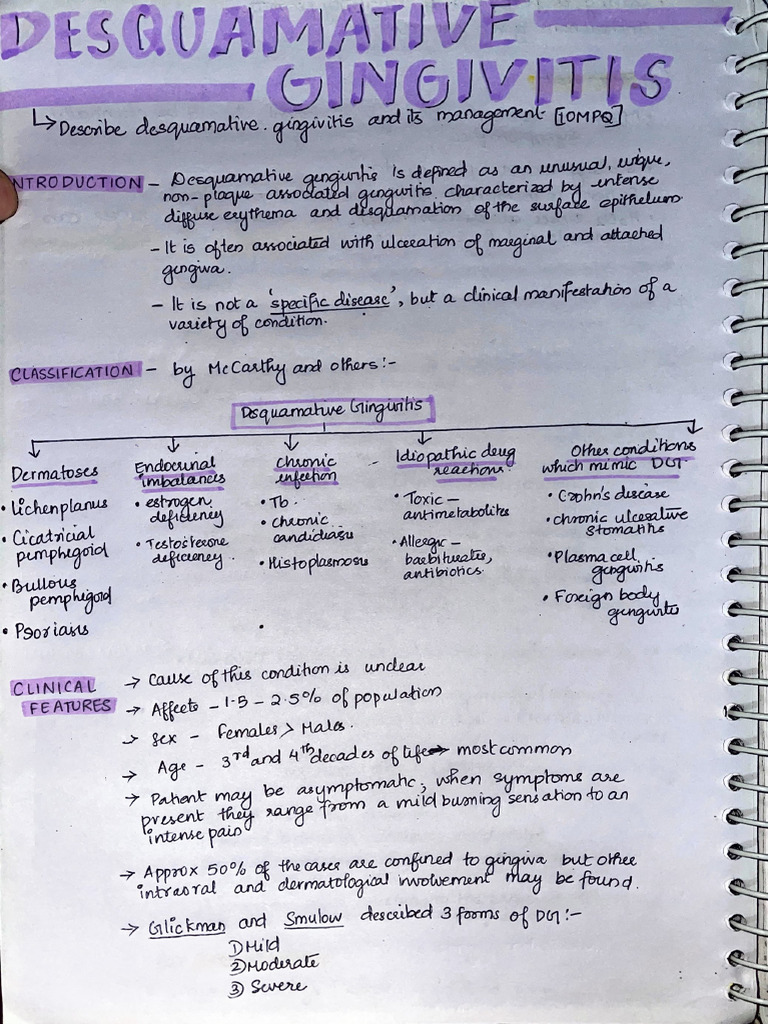 DESQUAMATIVE
GINGIVITIS
↳ Describe desquamative gingivitis and its management [10MPQ]
INTRODUCTION - Desquamative gingivitis is defined as an unusual, unique,
non-plaque associated gingivitis characterized by intense
diffuse erythema and desquamation of the surface epithelium.
- It is often associated with ulceration of marginal and attached
gingiva.
- It is not a 'specific disease', but a clinical manifestation of a
variety of condition.
CLASSIFICATION - by McCarthy and others:-
Desquamative Gingivitis
Dermatoses
• Lichenplanus
• Cicatricial
pemphegoid
• Bullous
pemphegoid
• Psoriasis
Endocrinal
imbalances
• estrogen
deficiency
• Testosterone
deficiency.
chronic
infection
• Tb.
• chronic
candidiasis
• Histoplasmosis
Idiopathic drug
reactions
• Toxic -
antimetabolites
• Allergic -
barbiturates,
antibiotics.
Other conditions
which mimic DG.
• Crohn's disease
• chronic ulcerative
stomatitis
• Plasma cell
gingivitis
• Foreign body
gingivitis
CLINICAL
FEATURES
→ Cause of this condition is unclear
→ Affects - 1.5 - 2.5% of population
→ Sex - Females > Males.
→ Age - 3rd and 4th decades of life → most common
→ Patient may be asymptomatic, when symptoms are
present they range from a mild burning sensation to an
intense pain
→ Approx 50% of the cases are confined to gingiva but other
intraoral and dermatological involvement may be found.
→ Glickman and Smulow described 3 forms of DG:-
① Mild
② Moderate
③ Severe